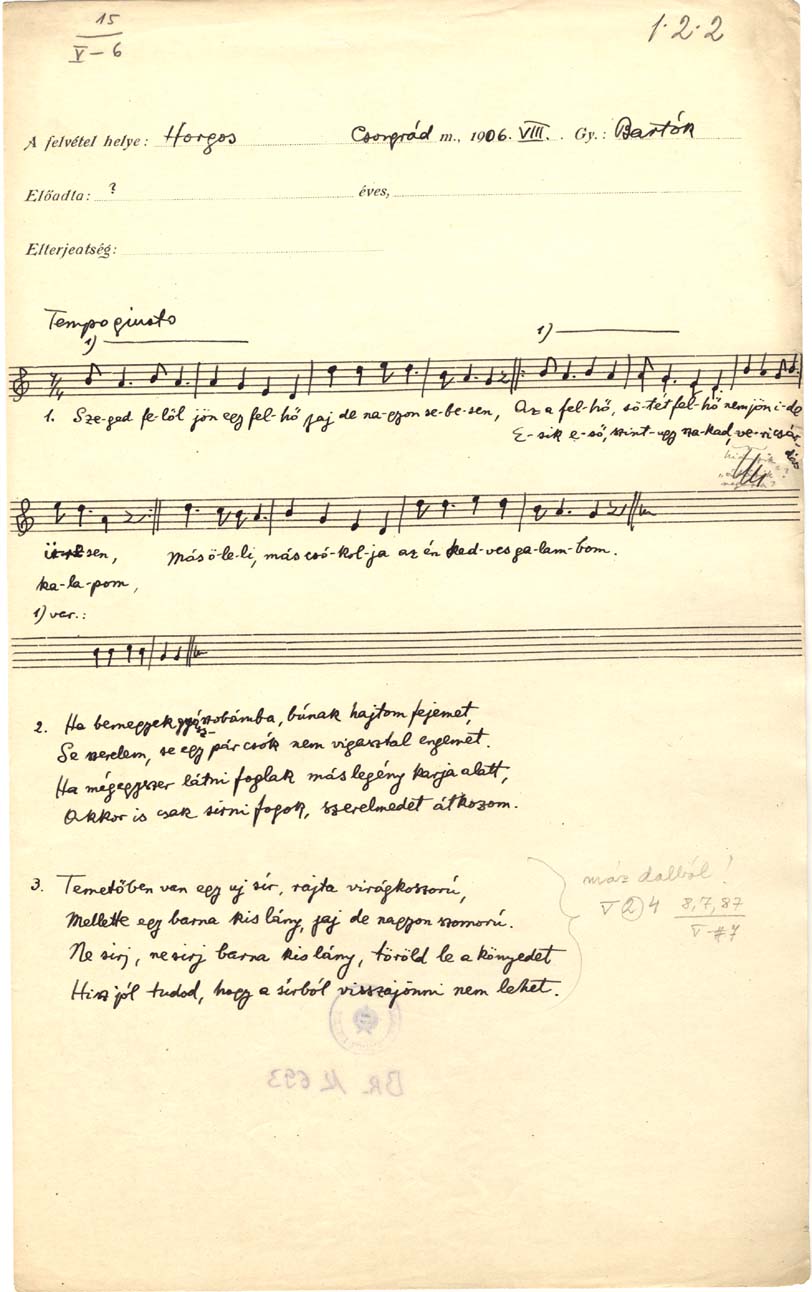 15
V – 6
1·2·2
A felvétel helye: Horgos Csongrád m., 1906. VIII. Gy.: Bartók
Előadta: ? éves,
Elterjeatség:
Tempo giusto
1)
1)
1. Sze-ged fe-löl jön egy fel-hő jaj de na-gyon se-be-sen, Az a fel-hő, sö-tét fel-hő nem jön i-de
E-sik e-ső, szint-ugy sza-kad, ve-ri csár-
dás
sen, Más ö-le-li, más csó-kol-ja az én ked-ves ga-lam-bom.
ka-la-pom,
1) var.:
2. Ha bemegyek gyászobámba, búnak hajtom fejemet,
Se szerelem, se egy pár csók nem vigasztal engemet.
Ha mégegyszer látni foglak más legény karja alatt,
Akkor is csak sirni fogok, szerelmedet átkozom.
3. Temetőben van egy uj sír, rajta virágkoszorú,
Mellette egy barna kis lány, jaj de nagyon szomorú.
Ne sirj, ne sirj barna kis lány, töröld le a könyedet
Hisz jól tudod, hogy a sírból visszajönni nem lehet.
más dalból!
V 2 4 8,7,87
V #7
BR. 12 693